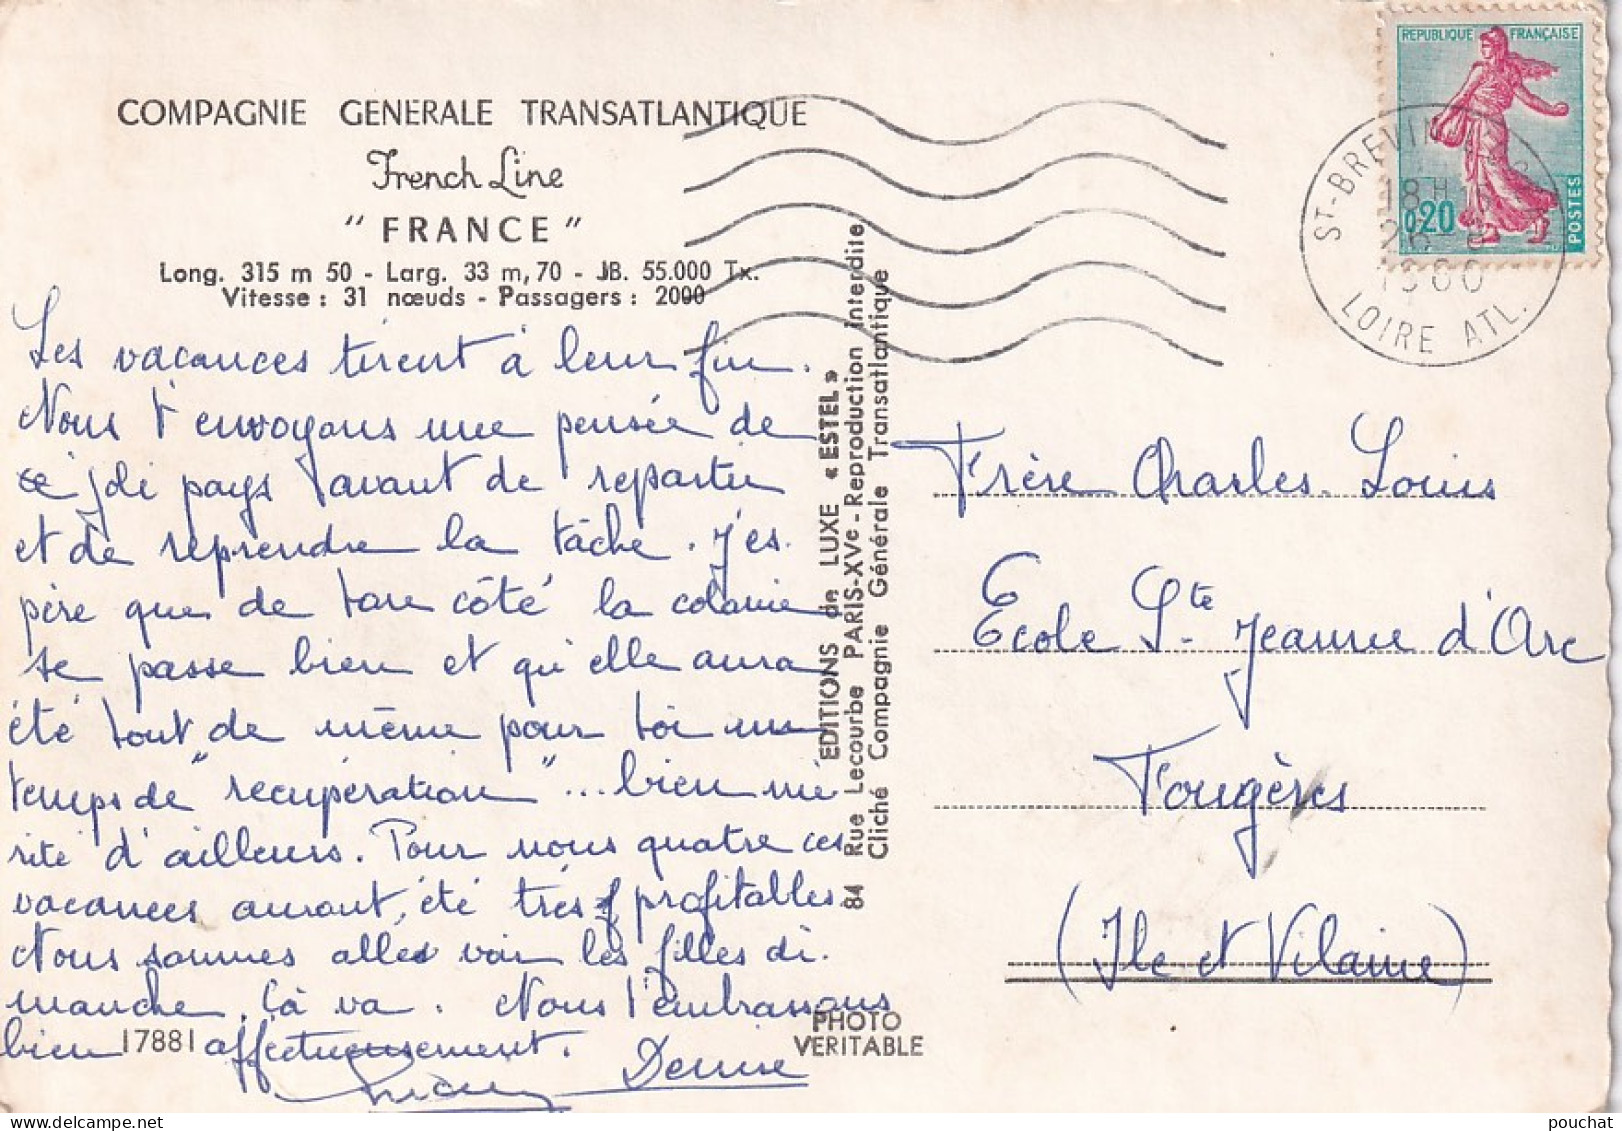 COMPAGNIE GENERALE TRANSATLANTIQUE
French Line
"FRANCE"
Long. 315 m 50 - Larg. 33 m, 70 - JB. 55.000 Tx.
Vitesse : 31 nœuds - Passagers : 2000
Les vacances tirent à leur fin.
Nous t'envoyons une pensée de
ce joli pays avant de repartir
et de reprendre la tâche. J'es-
père que de ton côté la colonie
se passe bien et qu'elle aura
été tout de même pour toi un
temps de "récupération"... bien mé
rité d'ailleurs. Pour nous quatre ces
vacances auront été très profitables.
Nous sommes allés voir les filles di-
manche. Çà va. Nous t'embrassons
bien affectueusement.
Denise
17881
EDITIONS de LUXE « ESTEL »
84 Rue Lecourbe PARIS-XVe - Reproduction interdite
Cliché Compagnie Générale Transatlantique
PHOTO
VERITABLE
REPUBLIQUE FRANÇAISE
0,20
POSTES
ST-BREVIN
18H
26
1960
LOIRE ATL.
Frère Charles Louis
Ecole Ste Jeanne d'Arc
Fougères
(Ile et Vilaine)
pouchat